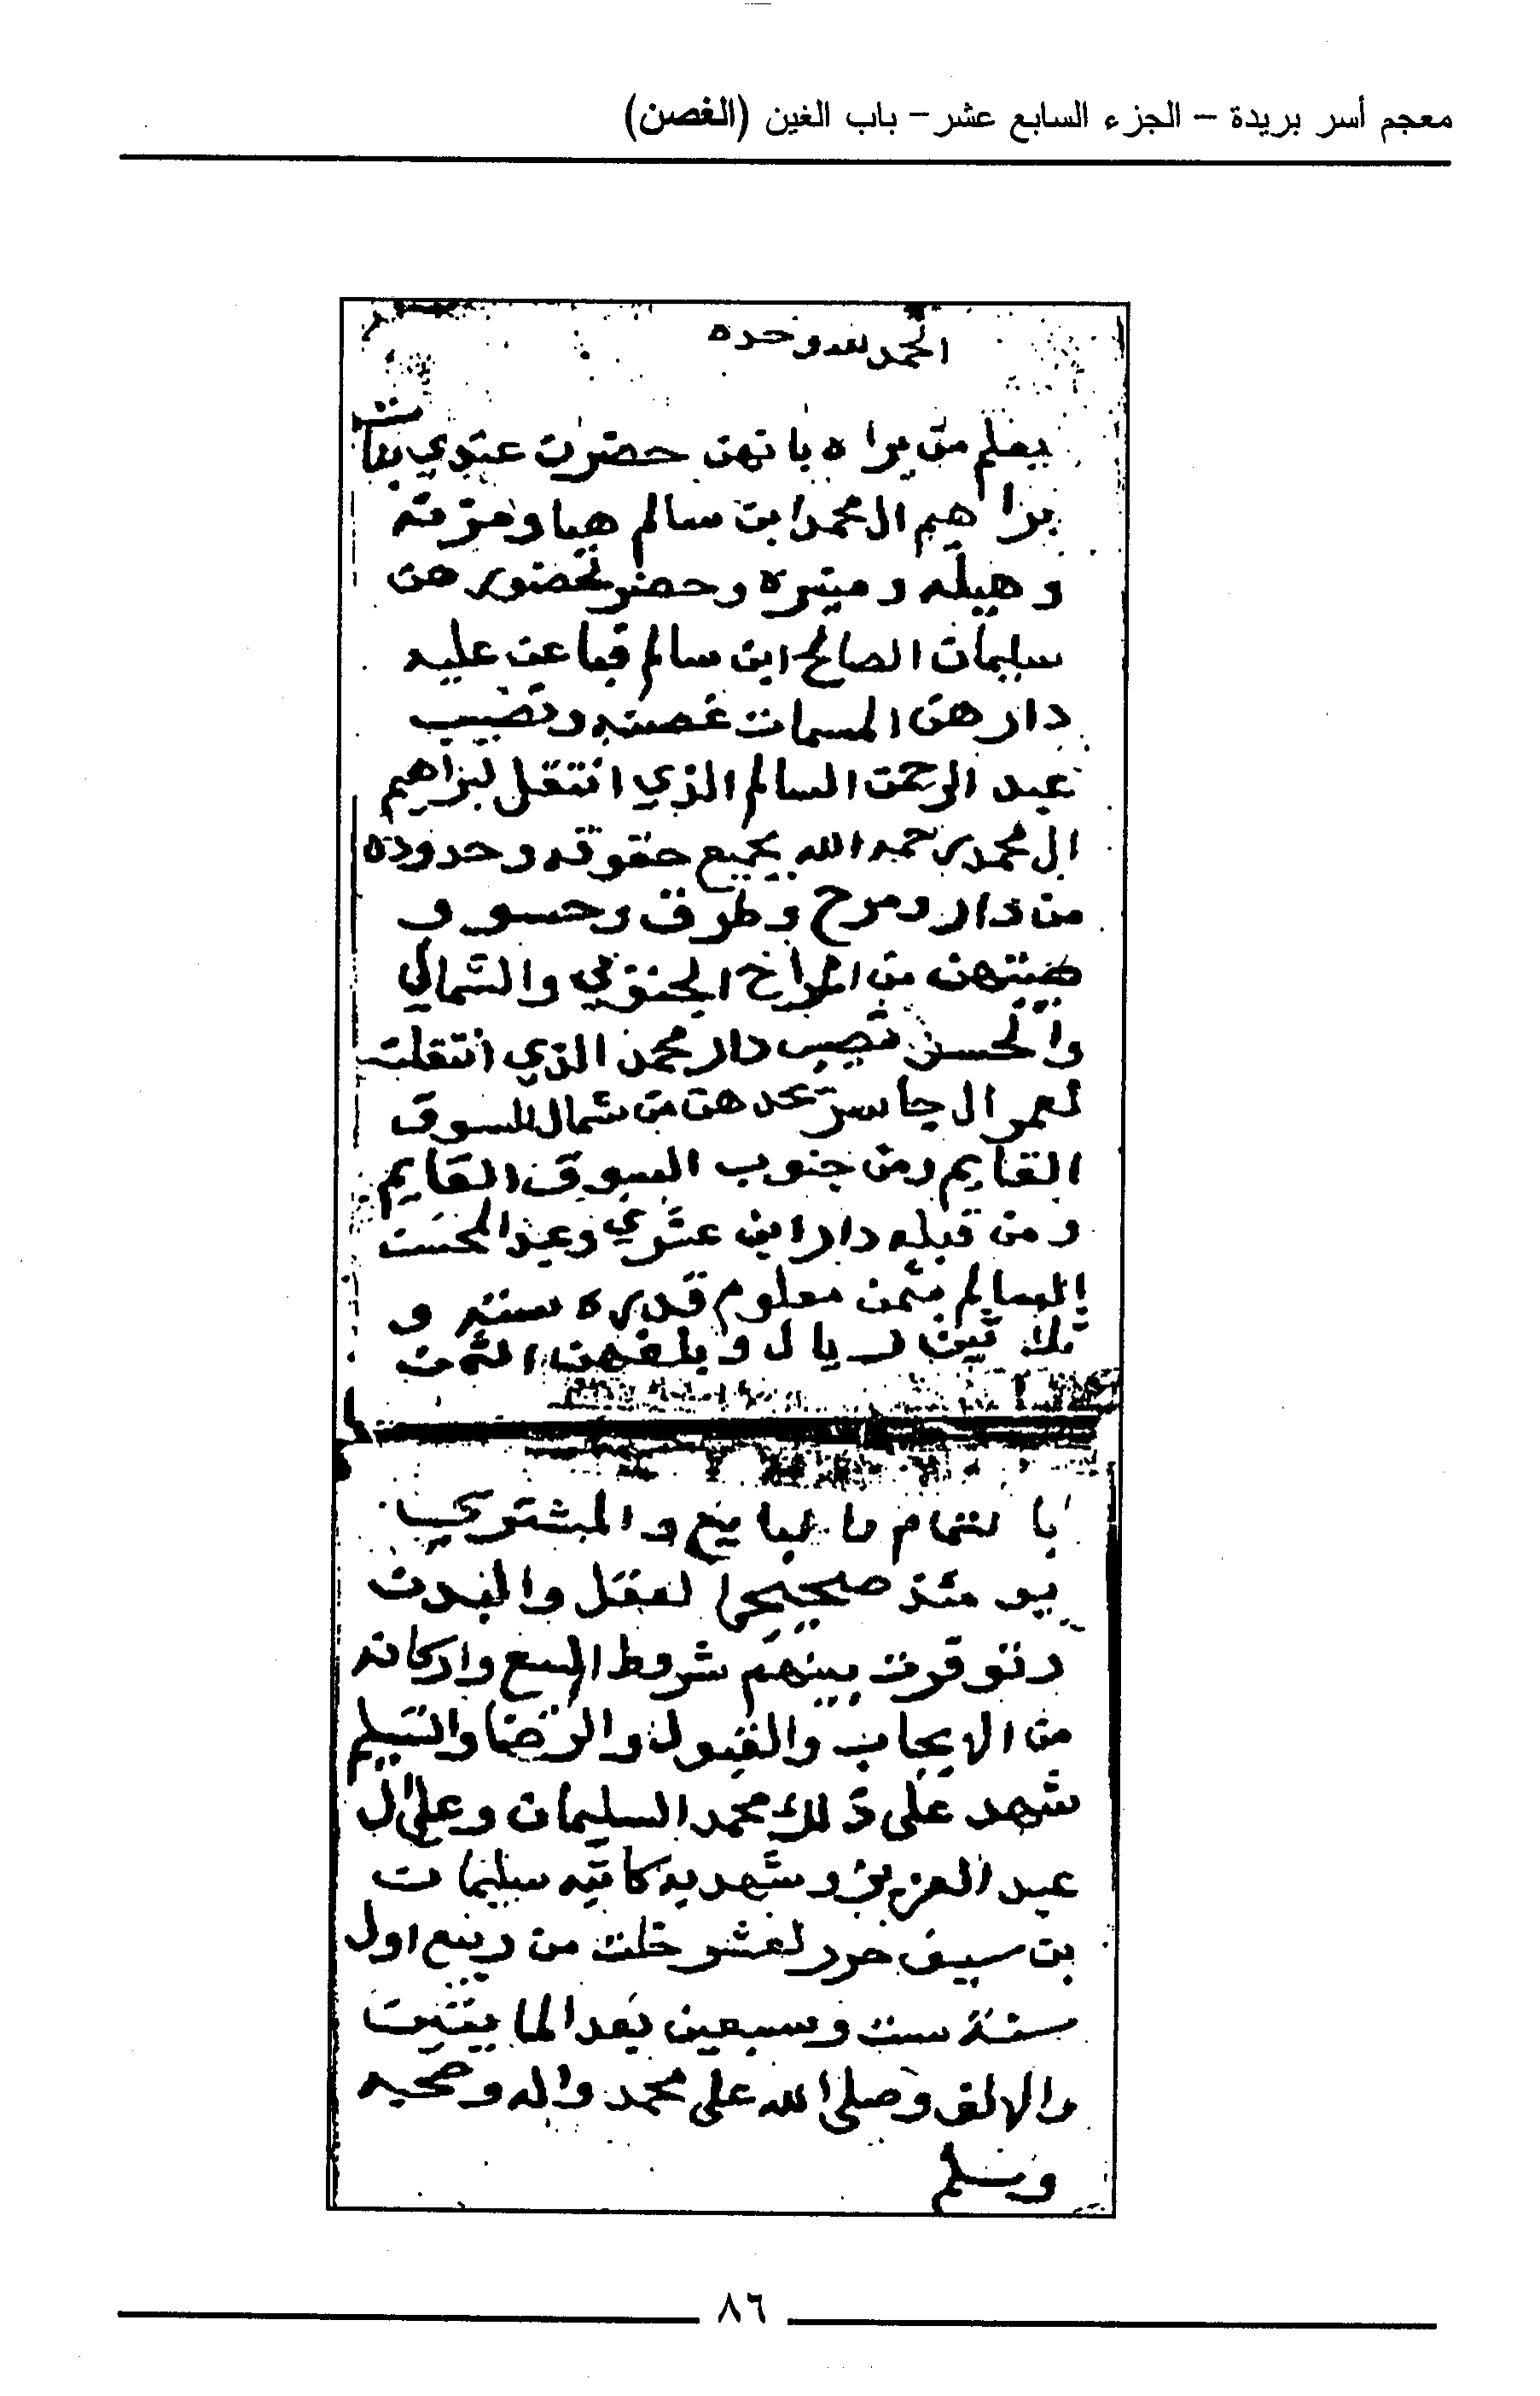 معجم أسر بريدة – الجزء السابع عشر – باب الغين (الغصن)
الحمد لله وحده
يعلم من يراه بانهن حضرن عندي بنات
براهيم ال محمد ابن سالم هيا ومزنه
وهيله ومنيره وحضر لحضورهن
سليمان الصالح ابن سالم فباعن عليه
دارهن المسمات غصنه ونصيب
عبد الرحمن السالم الذي انتقل لبراهيم
ال محمد رحمه الله بجميع حقوقه وحدوده
من دار ومرح وطرق وحسو و
من الجنوبي والشمالي
والحسو نصيب دار محمد الذي انتقلت
لعمر ال جاسر يحدهن من شمال السوق
القايم ومن جنوب السوق القايم
ومن قبله دار ابن عشري وعبد المحسن
السالم بثمن معلوم قدره سته و
ثلاثين ريال وبلغهن الثمن
بالتمام والبايع والمشتري
يومئذ صحيحا لعقل والبدن
وتوفرت بينهم شروط البيع واركانه
من الايجاب والقبول والرضا والتسليم
شهد على ذلك محمد السليمان وعلي ال
عبد العزيز وشهد به كاتبه سليمان
بن سيف حرر لعشر خلت من ربيع اول
سنة ست وسبعين بعد المايتين
والالف وصلى الله على محمد واله وصحبه
وسلم
٨٦